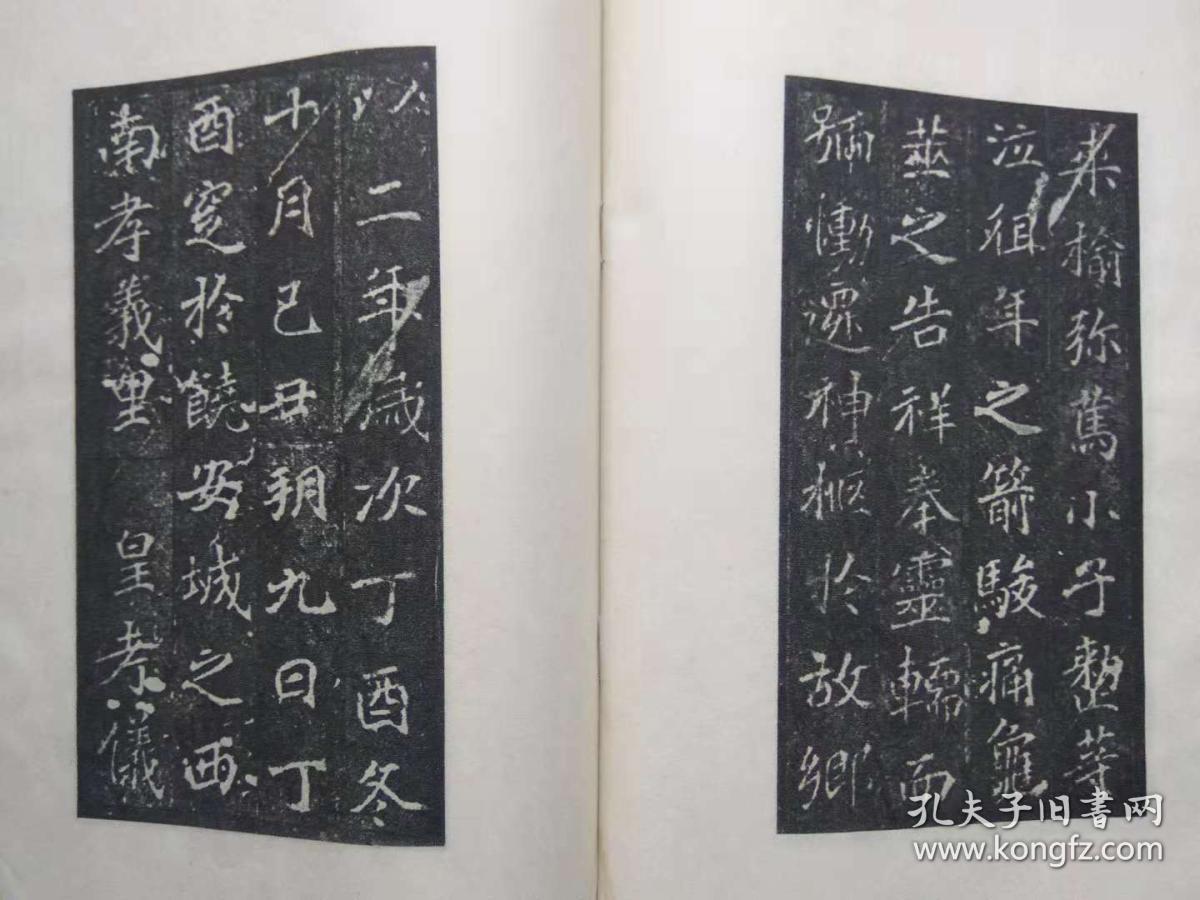 榆弥篤小子整等
泣徂年之箭駿痛龜
筮之告祥奉靈轜而
號慟遷神柩於故鄉
以二年歲次丁酉冬
十月己丑朔九日丁
酉窆於饒安城之西
南孝義里 皇考儀
孔夫子旧书网
www.kongfz.com